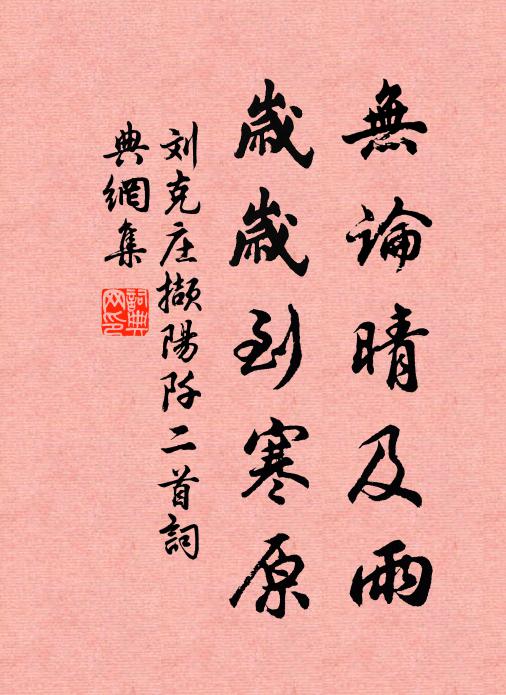 無論晴及雨
歲歲到寒原
刘克庄擷陽阡二首詞
典網集
詞典
网印